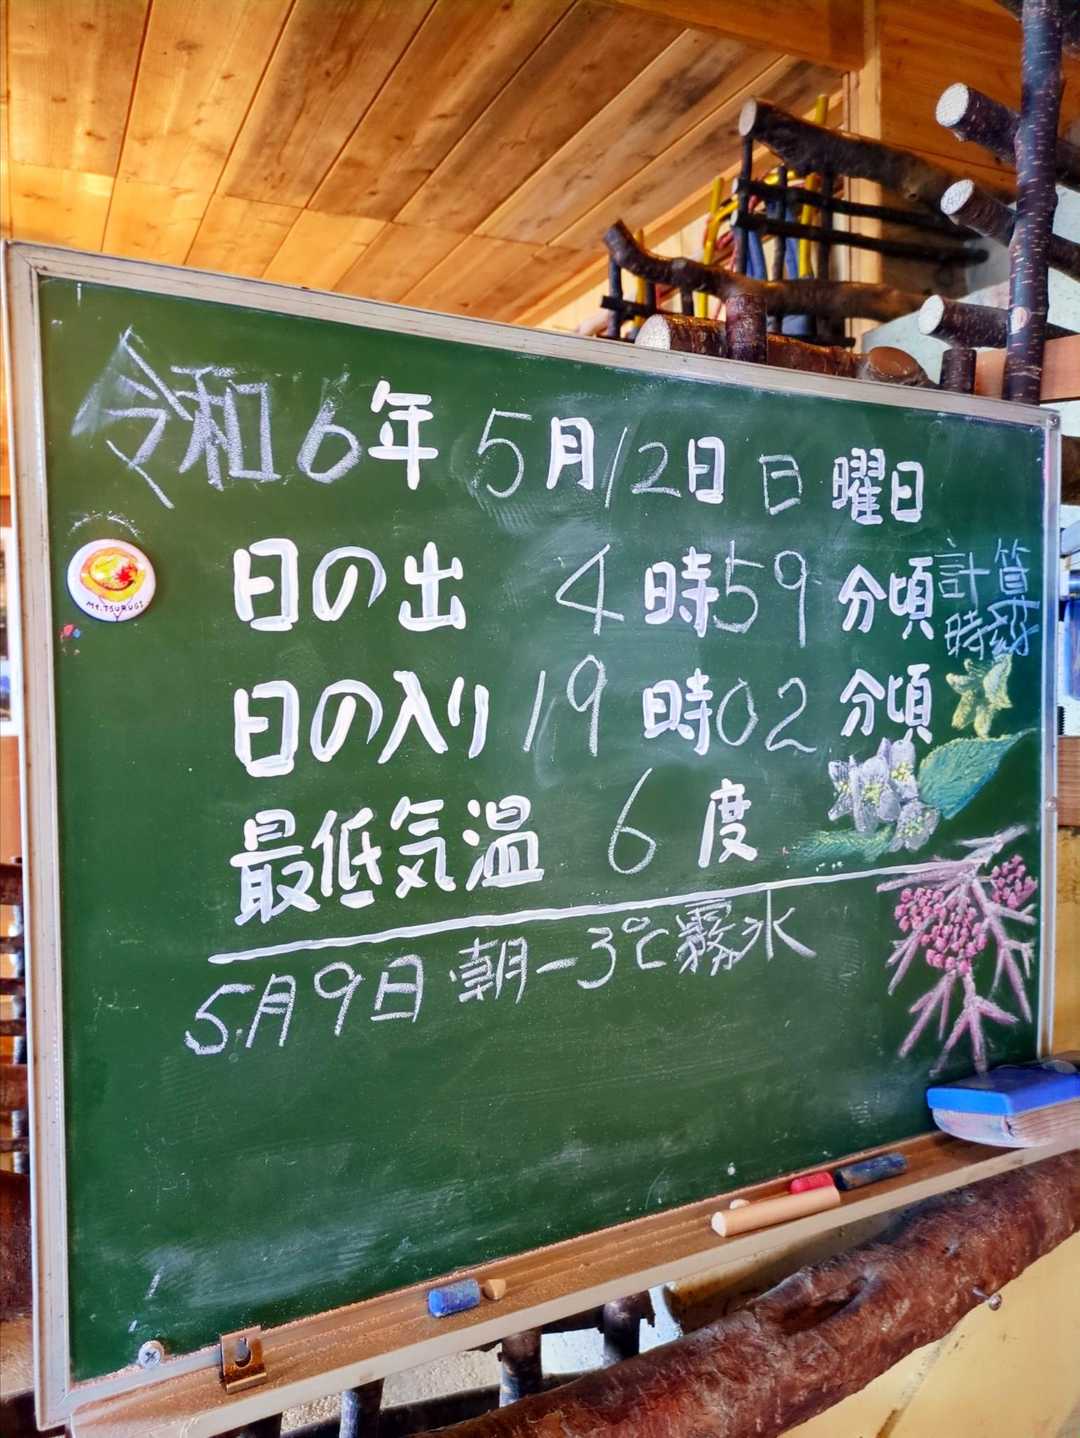 令和6年 5月12日 日曜日
日の出 4時59分頃 計算
時刻
日の入り 19時02分頃
最低気温 6度
5月9日 朝-3℃霧氷
Mt.TSURUGI